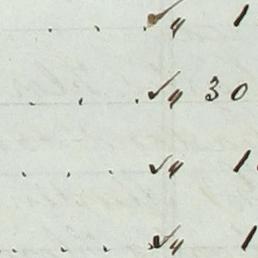 . . . ✓ 4 1
. . . ✓ 4 30
. . . ✓ 4 1
. . . . ✓ 4 1